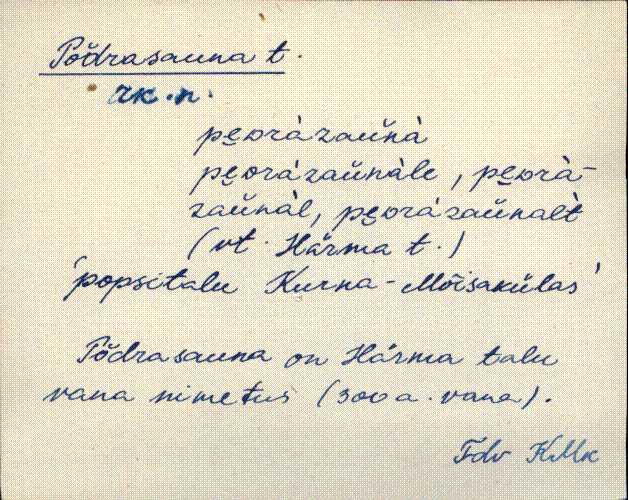 Põdrasauna t.
rk. n.
pe̮oràzaŭnà
pe̮oràzaŭnàle, pe̮orà-
zaŭnàl, pe̮oràzaŭnalt̀
(vt. Härma t.)
'popsitalu Kurna-Mõisakülas'
Põdrasauna on Härma talu
vana nimetus (300 a. vana).
KMk